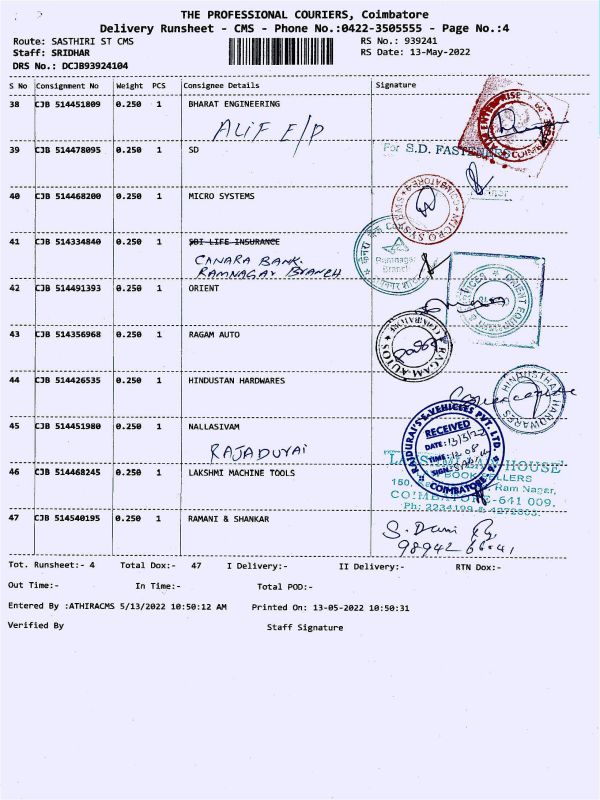 THE PROFESSIONAL COURIERS, Coimbatore
Delivery Runsheet - CMS - Phone No.:0422-3505555 - Page No.:4
Route: SASTHIRI ST CMS
RS No.: 939241
Staff: SRIDHAR
RS Date: 13-May-2022
DRS No.: DCJB93924104
S No Consignment No Weight PCS Consignee Details Signature
38 CJB 514451809 0.250 1 BHARAT ENGINEERING
ALIF E/P
39 CJB 514478095 0.250 1 SD
For S.D. FASTENERS
40 CJB 514468200 0.250 1 MICRO SYSTEMS
MICRO SYSTEMS COIMBATORE
41 CJB 514334840 0.250 1 SBI LIFE INSURANCE
CANARA BANK.
RAMNAGAR BRANCH
Ramnagar
Branch
42 CJB 514491393 0.250 1 ORIENT
43 CJB 514356968 0.250 1 RAGAM AUTO
RAGAM AUTOS COIMBATORE
44 CJB 514426535 0.250 1 HINDUSTAN HARDWARES
HINDUSTHAN HARDWARES
45 CJB 514451980 0.250 1 NALLASIVAM
RAJADURAI
RAJDURAI'S E-VEHICLES PVT. LTD.
RECEIVED
DATE: 13/5/22
TIME:
SIGN:
COIMBATORE
46 CJB 514468245 0.250 1 LAKSHMI MACHINE TOOLS
HOUSE
BOOK SELLERS
150, Ram Nagar,
COIMBATORE-641 009.
47 CJB 514540195 0.250 1 RAMANI & SHANKAR
Tot. Runsheet:- 4 Total Dox:- 47 I Delivery:- II Delivery:- RTN Dox:-
Out Time:- In Time:- Total POD:-
Entered By :ATHIRACMS 5/13/2022 10:50:12 AM Printed On: 13-05-2022 10:50:31
Verified By Staff Signature